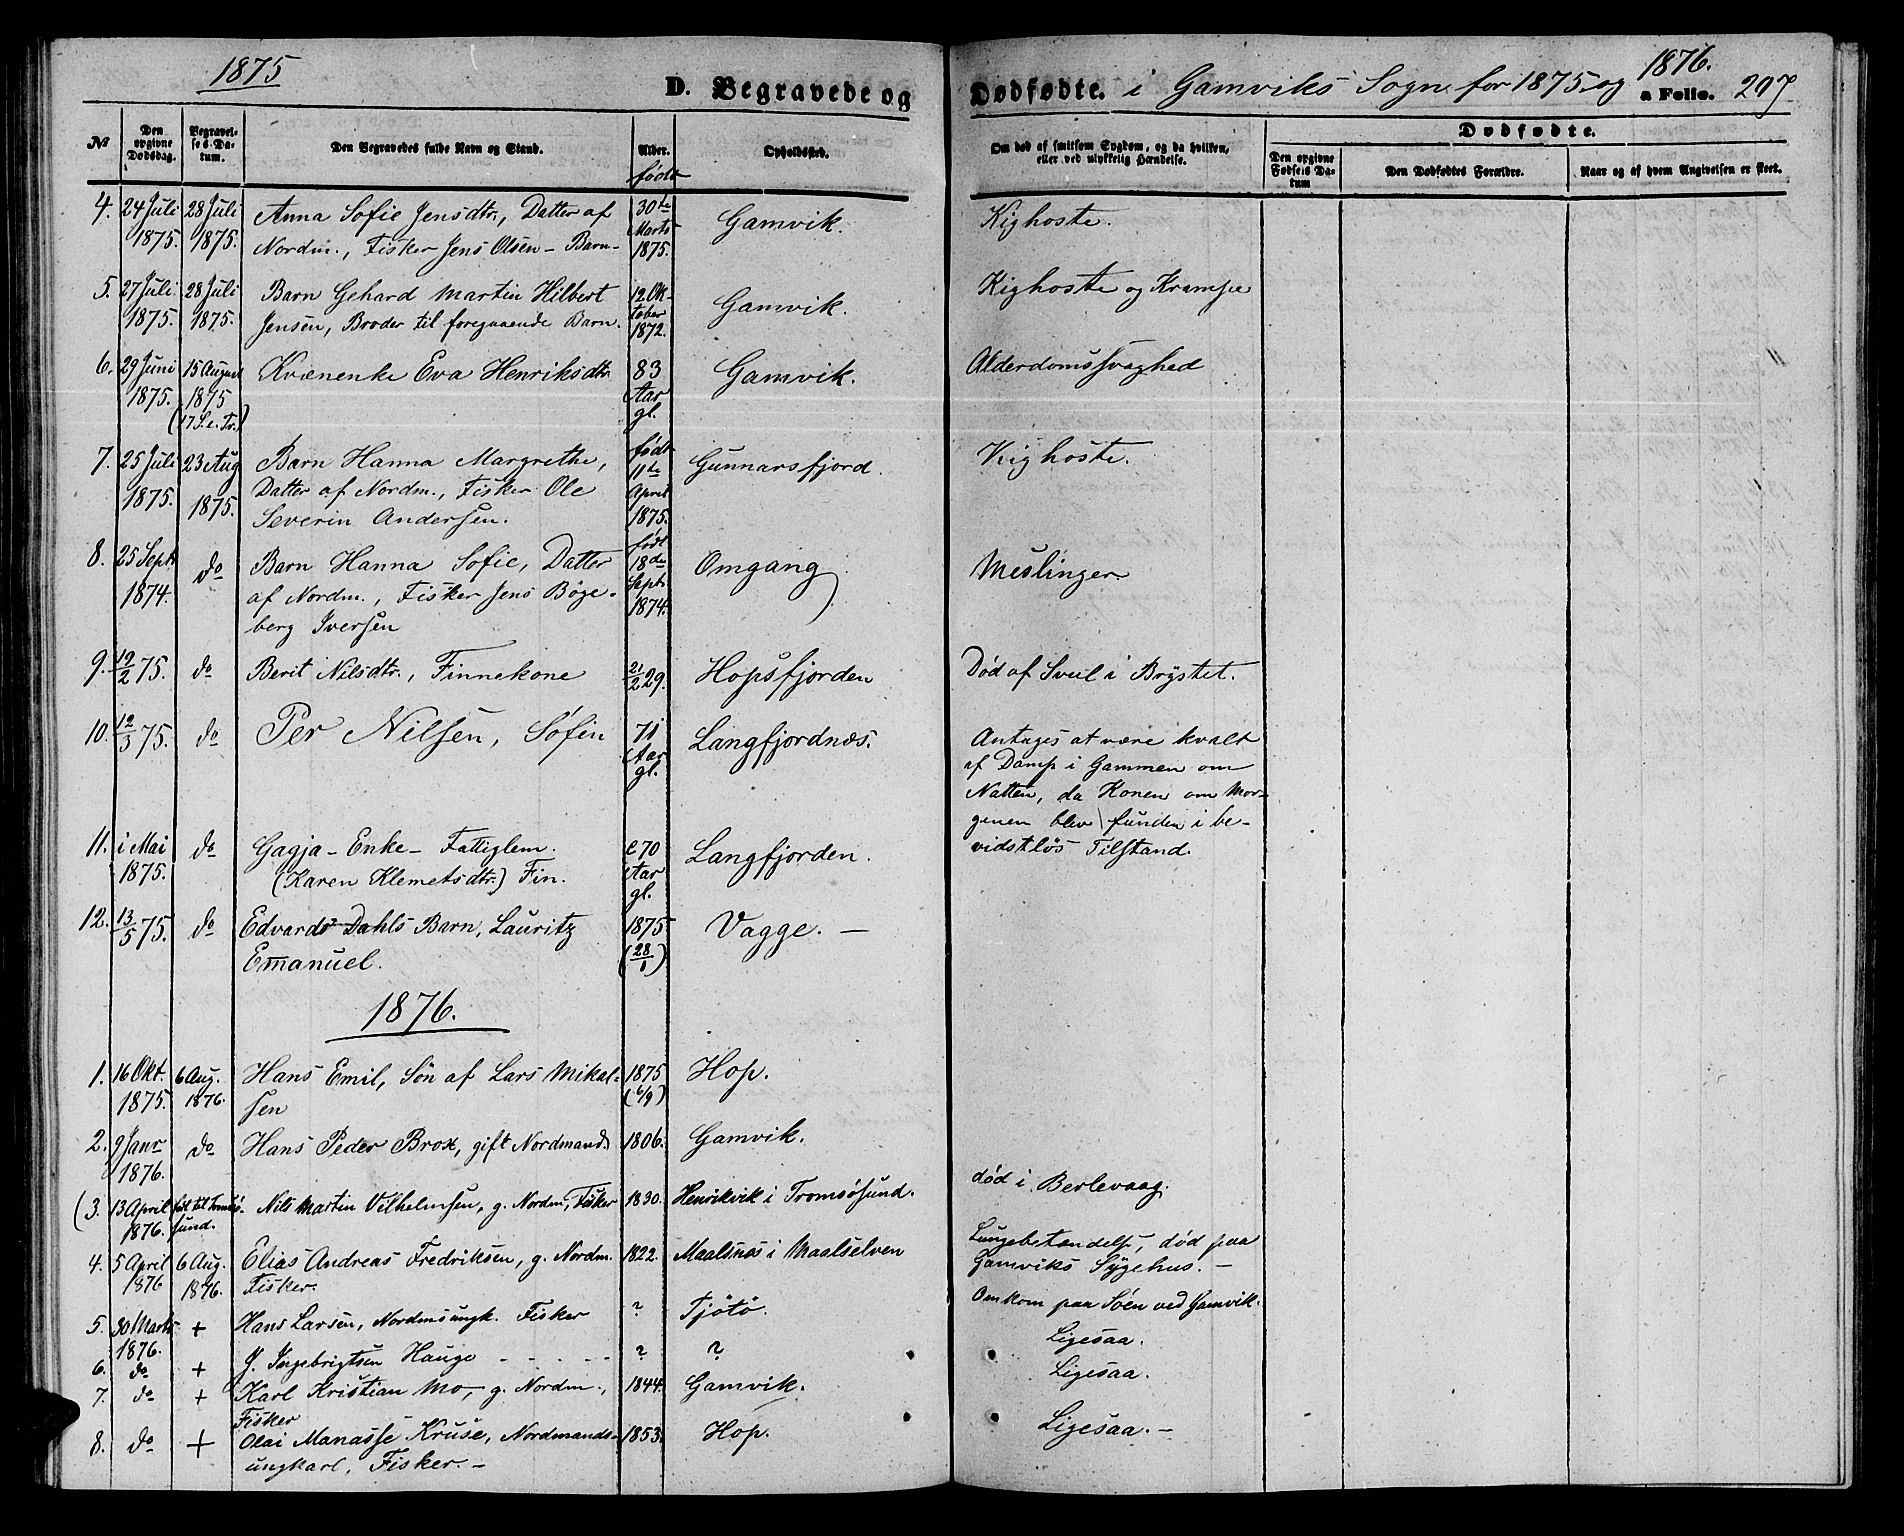 1875
D. Begravede og
Dødfødte. i Gamviks Sogn for 1875 og 1876.
a Folio. 297
№
Den opgivne Dødsdag.
Begravelses Datum.
Den Begravedes fulde Navn og Stand.
Alder.
født
Opholdssted.
Om død af smitsom Sygdom, og da hvilken, eller ved ulykkelig Hændelse.
Dødfødte.
Den opgivne Fødsels Datum
Den Dødfødtes Forældre.
Naar og af hvem Angivelsen er skeet.
4. 24 Juli 28 Juli Anna Sofie Jensdtr., Datter af 30te Gamvik. Kighoste.
1875. 1875. Nordm., Fisker Jens Olsen - Barn - Marts
1875.
5. 27 Juli 28 Juli Barn Gehard Martin Hilbert 12 Ok- Gamvik. Kighoste og Krampe
1875. 1875. Jensen, Broder til foregaaende Barn. tober
1872.
6. 29 Juni 15 August Kvænenke Eva Henriksdtr. 83 Gamvik. Alderdomssvaghed
1875. 1875 Aar
(17 S. e. Tr.) gl.
7. 25 Juli 23 Aug Barn Hanna Margrethe, født Gunnarsfjord. Kighoste.
1875. 1875. Datter af Nordm., Fisker Ole 11te April
Severin Andersen. 1875.
8. 25 Sept. do Barn Hanna Sofie, Datter født 18de Omgang Meslinger.
1874. af Nordm., Fisker Jens Böge- Sept.
berg Iversen 1874.
9. 12/2 75. do Berit Nilsdtr., Finnekone 21/2 29. Hopsfjorden Död af Svul i Brystet.
10. 12/3 75. do Per Nilsen, Söfin 71 Langfjordnæs. Antages at være kvalt
Aar af Damp i Gammen om
gl. Natten, da Konen om Mor-
genen blev funden i be-
vidstlös Tilstand.
11. i Mai do Gagja - Enke - Fattiglem. c 70 Langfjorden.
1875. (Karen Klemetsdtr.) Fin. Aar
gl.
12. 13/5 75. do Edvard Dahls Barn, Lauritz 1875 Vagge. -
Emanuel. (28/1)
1876.
1. 16 Okt. 6 Aug. Hans Emil, Sön af Lars Mikal- 1875 Hop.
1875. 1876. sen (6/9)
2. 9 Janr do Hans Peder Brox, gift Nordmand. 1806. Gamvik.
1876.
(3. 13 April ført til Tromsö- Nils Martin Vilhelmsen, g. Nordm., Fisker 1830. Henrikvik i Tromsösund. død i Berlevaag.
1876. sund.
4. 5 April 6 Aug. Elias Andreas Fredriksen, g. Nordm. 1822. Maalsnes i Maalselven Lungebetændelse, død paa
1876 1876. Fisker. Gamviks Sygehus. -
5. 30 Marts + Hans Larsen, Nordmsungk. Fisker ? Tjötö. Omkom paa Söen ved Gamvik.
1876.
6. do + J. Ingebrigtsen Hauge - - - - - ? ? Ligesaa.
7. do + Karl Kristian Mo, g. Nordm., 1844. Gamvik. Ligesaa.
Fisker
8. do + Olai Manasse Kruse, Nordmands- 1853. Hop. Ligesaa. -
ungkarl, Fisker. -